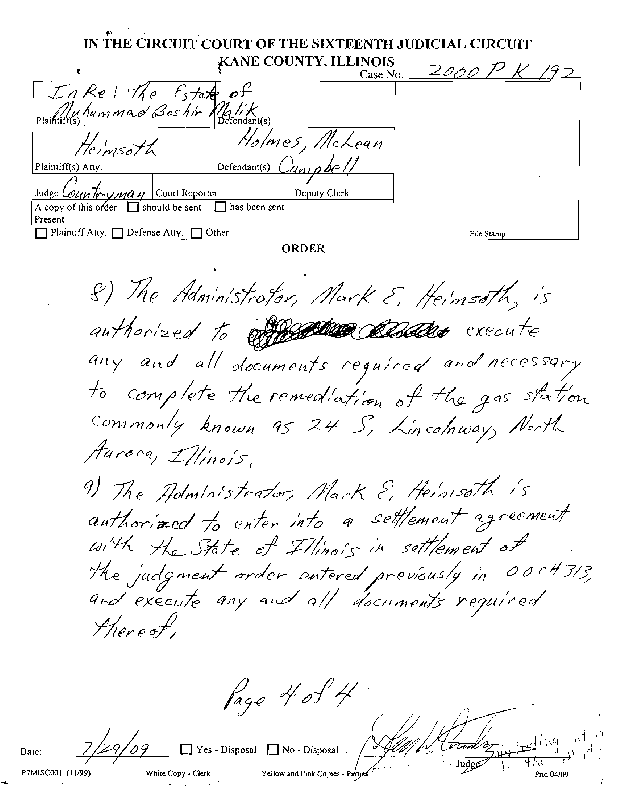 IN THE CIRCUIT COURT OF THE SIXTEENTH JUDICIAL CIRCUIT
KANE COUNTY, ILLINOIS
Case No. 2000 P K 192
In Re: The Estate of
Muhammad Bashir Malik
Plaintiff(s) Defendant(s)
Heimsoth Holmes, McLean
Plaintiff(s) Atty. Defendant(s) Campbell
Judge Countryman Court Reporter Deputy Clerk
A copy of this order ☐ should be sent ☐ has been sent
Present
☐ Plaintiff Atty. ☐ Defense Atty. ☐ Other File Stamp
ORDER
8) The Administrator, Mark E. Heimsoth, is
authorized to execute
any and all documents required and necessary
to complete the remediation of the gas station
commonly known as 24 S. Lincolnway, North
Aurora, Illinois.
9) The Administrator, Mark E. Heimsoth is
authorized to enter into a settlement agreement
with the State of Illinois in settlement of
the judgment order entered previously in 00CH313,
and execute any and all documents required
thereof.
Page 4 of 4
Date: 7/29/09 ☐ Yes - Disposal ☐ No - Disposal
Judge
P7MISC001 (11/99) White Copy - Clerk Yellow and Pink Copies - Parties Prtd 04/09